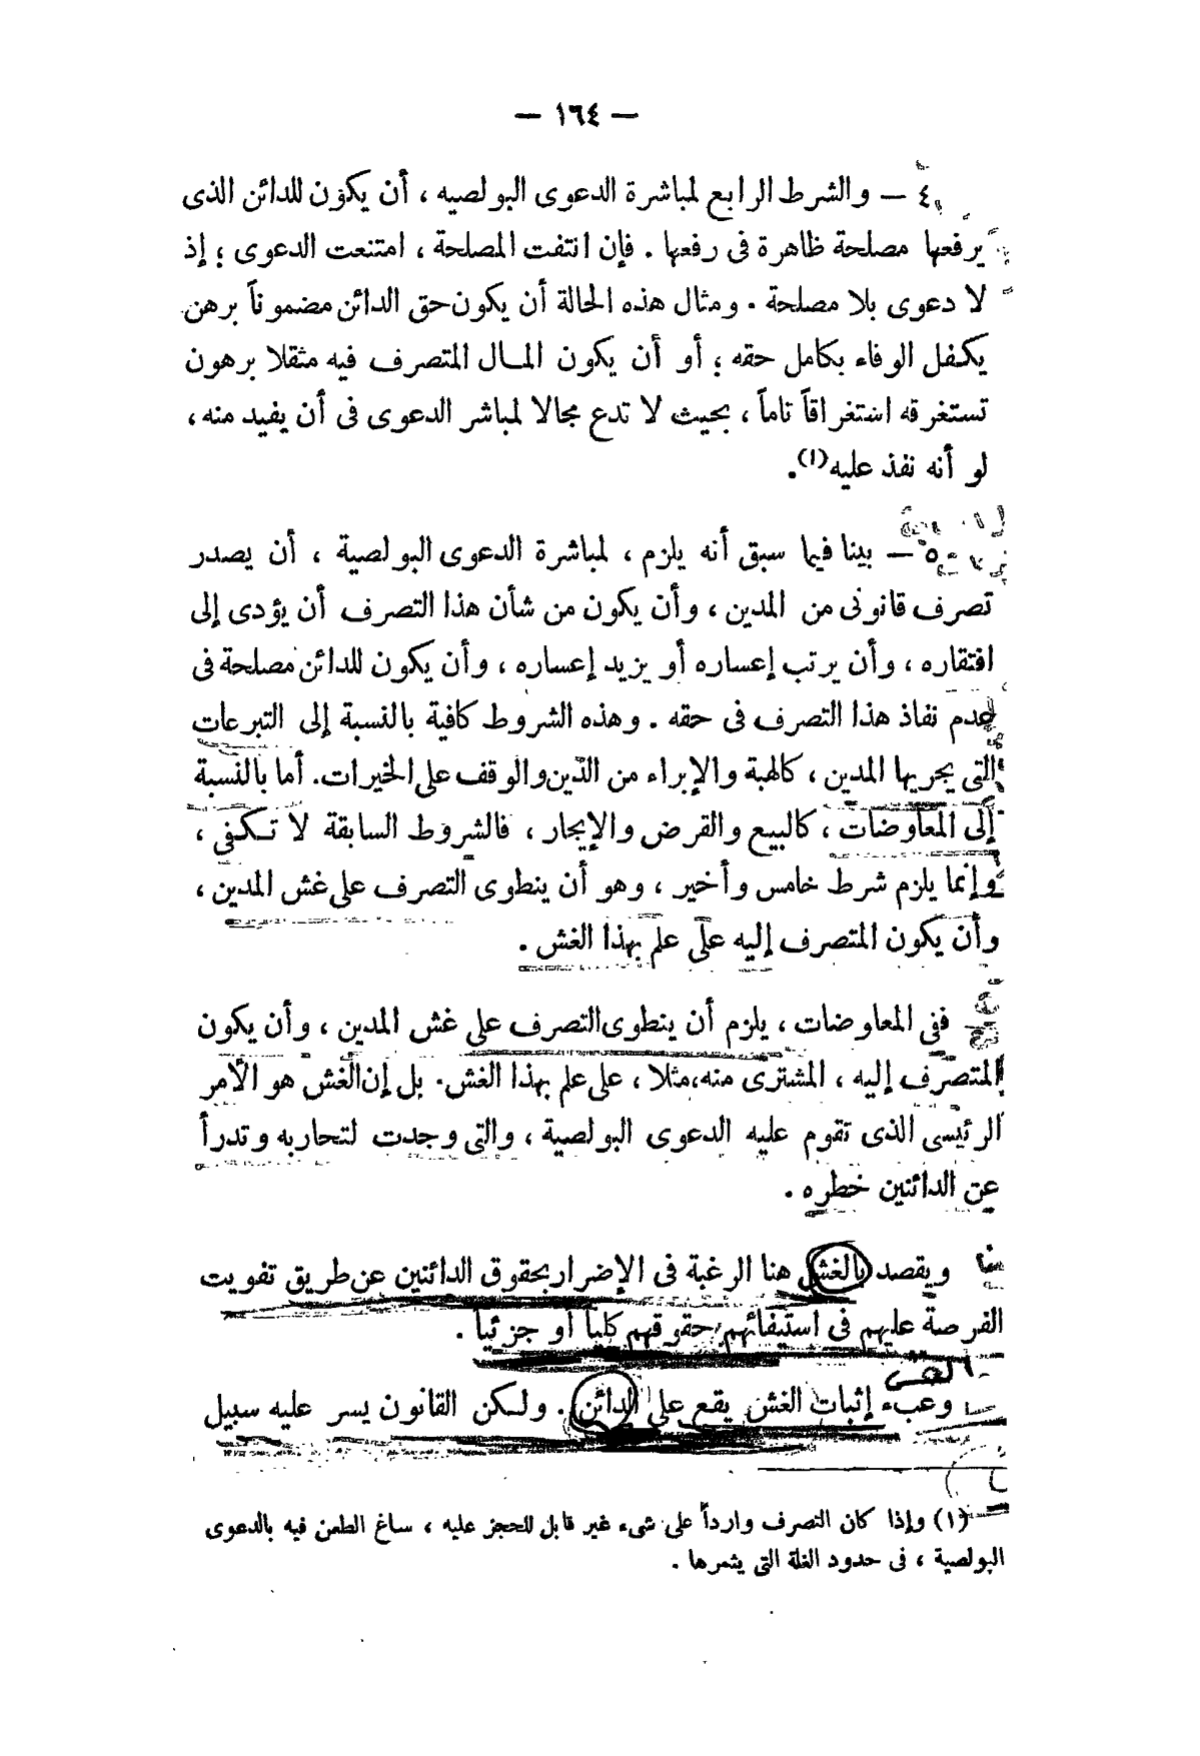 — ١٦٤ —
٤ — والشرط الرابع لمباشرة الدعوى البولصيه ، أن يكون للدائن الذى
يرفعها مصلحة ظاهرة فى رفعها . فإن انتفت المصلحة ، امتنعت الدعوى ؛ إذ
لا دعوى بلا مصلحة . ومثال هذه الحالة أن يكون حق الدائن مضموناً برهن
يكفل الوفاء بكامل حقه ؛ أو أن يكون المال المتصرف فيه مثقلا برهون
تستغرقه استغراقاً تاماً ، بحيث لا تدع مجالا لمباشر الدعوى فى أن يفيد منه ،
لو أنه نفذ عليه(١).
٥ — بينا فيما سبق أنه يلزم ، لمباشرة الدعوى البولصية ، أن يصدر
تصرف قانونى من المدين ، وأن يكون من شأن هذا التصرف أن يؤدى إلى
افتقاره ، وأن يرتب إعساره أو يزيد إعساره ، وأن يكون للدائن مصلحة فى
عدم نفاذ هذا التصرف فى حقه . وهذه الشروط كافية بالنسبة إلى التبرعات
التى يجريها المدين ، كالهبة والإبراء من الدين والوقف على الخيرات. أما بالنسبة
إلى المعاوضات ، كالبيع والقرض والإيجار ، فالشروط السابقة لا تكفى ،
وإنما يلزم شرط خامس وأخير ، وهو أن ينطوى التصرف على غش المدين ،
وأن يكون المتصرف إليه على علم بهذا الغش .
ففى المعاوضات ، يلزم أن ينطوى التصرف على غش المدين ، وأن يكون
المتصرف إليه ، المشترى منه، مثلا ، على علم بهذا الغش. بل إن الغش هو الأمر
الرئيسى الذى تقوم عليه الدعوى البولصية ، والتى وجدت لتحاربه وتدرأ
عن الدائنين خطره .
ويقصد بالغش هنا الرغبة فى الإضرار بحقوق الدائنين عن طريق تفويت
الفرصة عليهم فى استيفائهم حقوقهم كلياً أو جزئياً .
وعبء إثبات الغش يقع على الدائن . ولكن القانون يسر عليه سبيل
(١) وإذا كان التصرف وارداً على شىء غير قابل للحجز عليه ، ساغ الطعن فيه بالدعوى
البولصية ، فى حدود الغلة التى يثمرها .